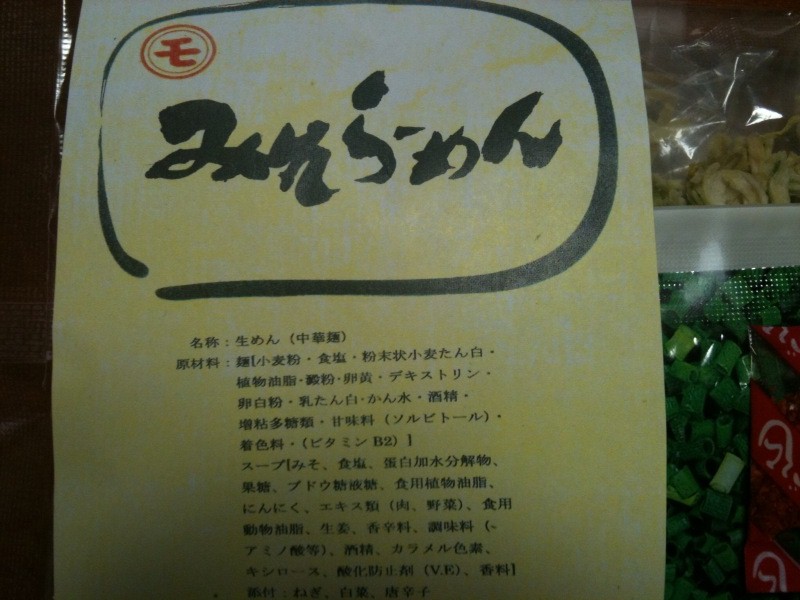 モ
みそらーめん
名称：生めん（中華麺）
原材料：麺[小麦粉・食塩・粉末状小麦たん白・
植物油脂・澱粉・卵黄・デキストリン・
卵白粉・乳たん白・かん水・酒精・
増粘多糖類・甘味料（ソルビトール）・
着色料・（ビタミンB2）]
スープ[みそ、食塩、蛋白加水分解物、
果糖、ブドウ糖液糖、食用植物油脂、
にんにく、エキス類（肉、野菜）、食用
動物油脂、生姜、香辛料、調味料（
アミノ酸等）、酒精、カラメル色素、
キシロース、酸化防止剤（V.E）、香料]
添付：ねぎ、白菜、唐辛子